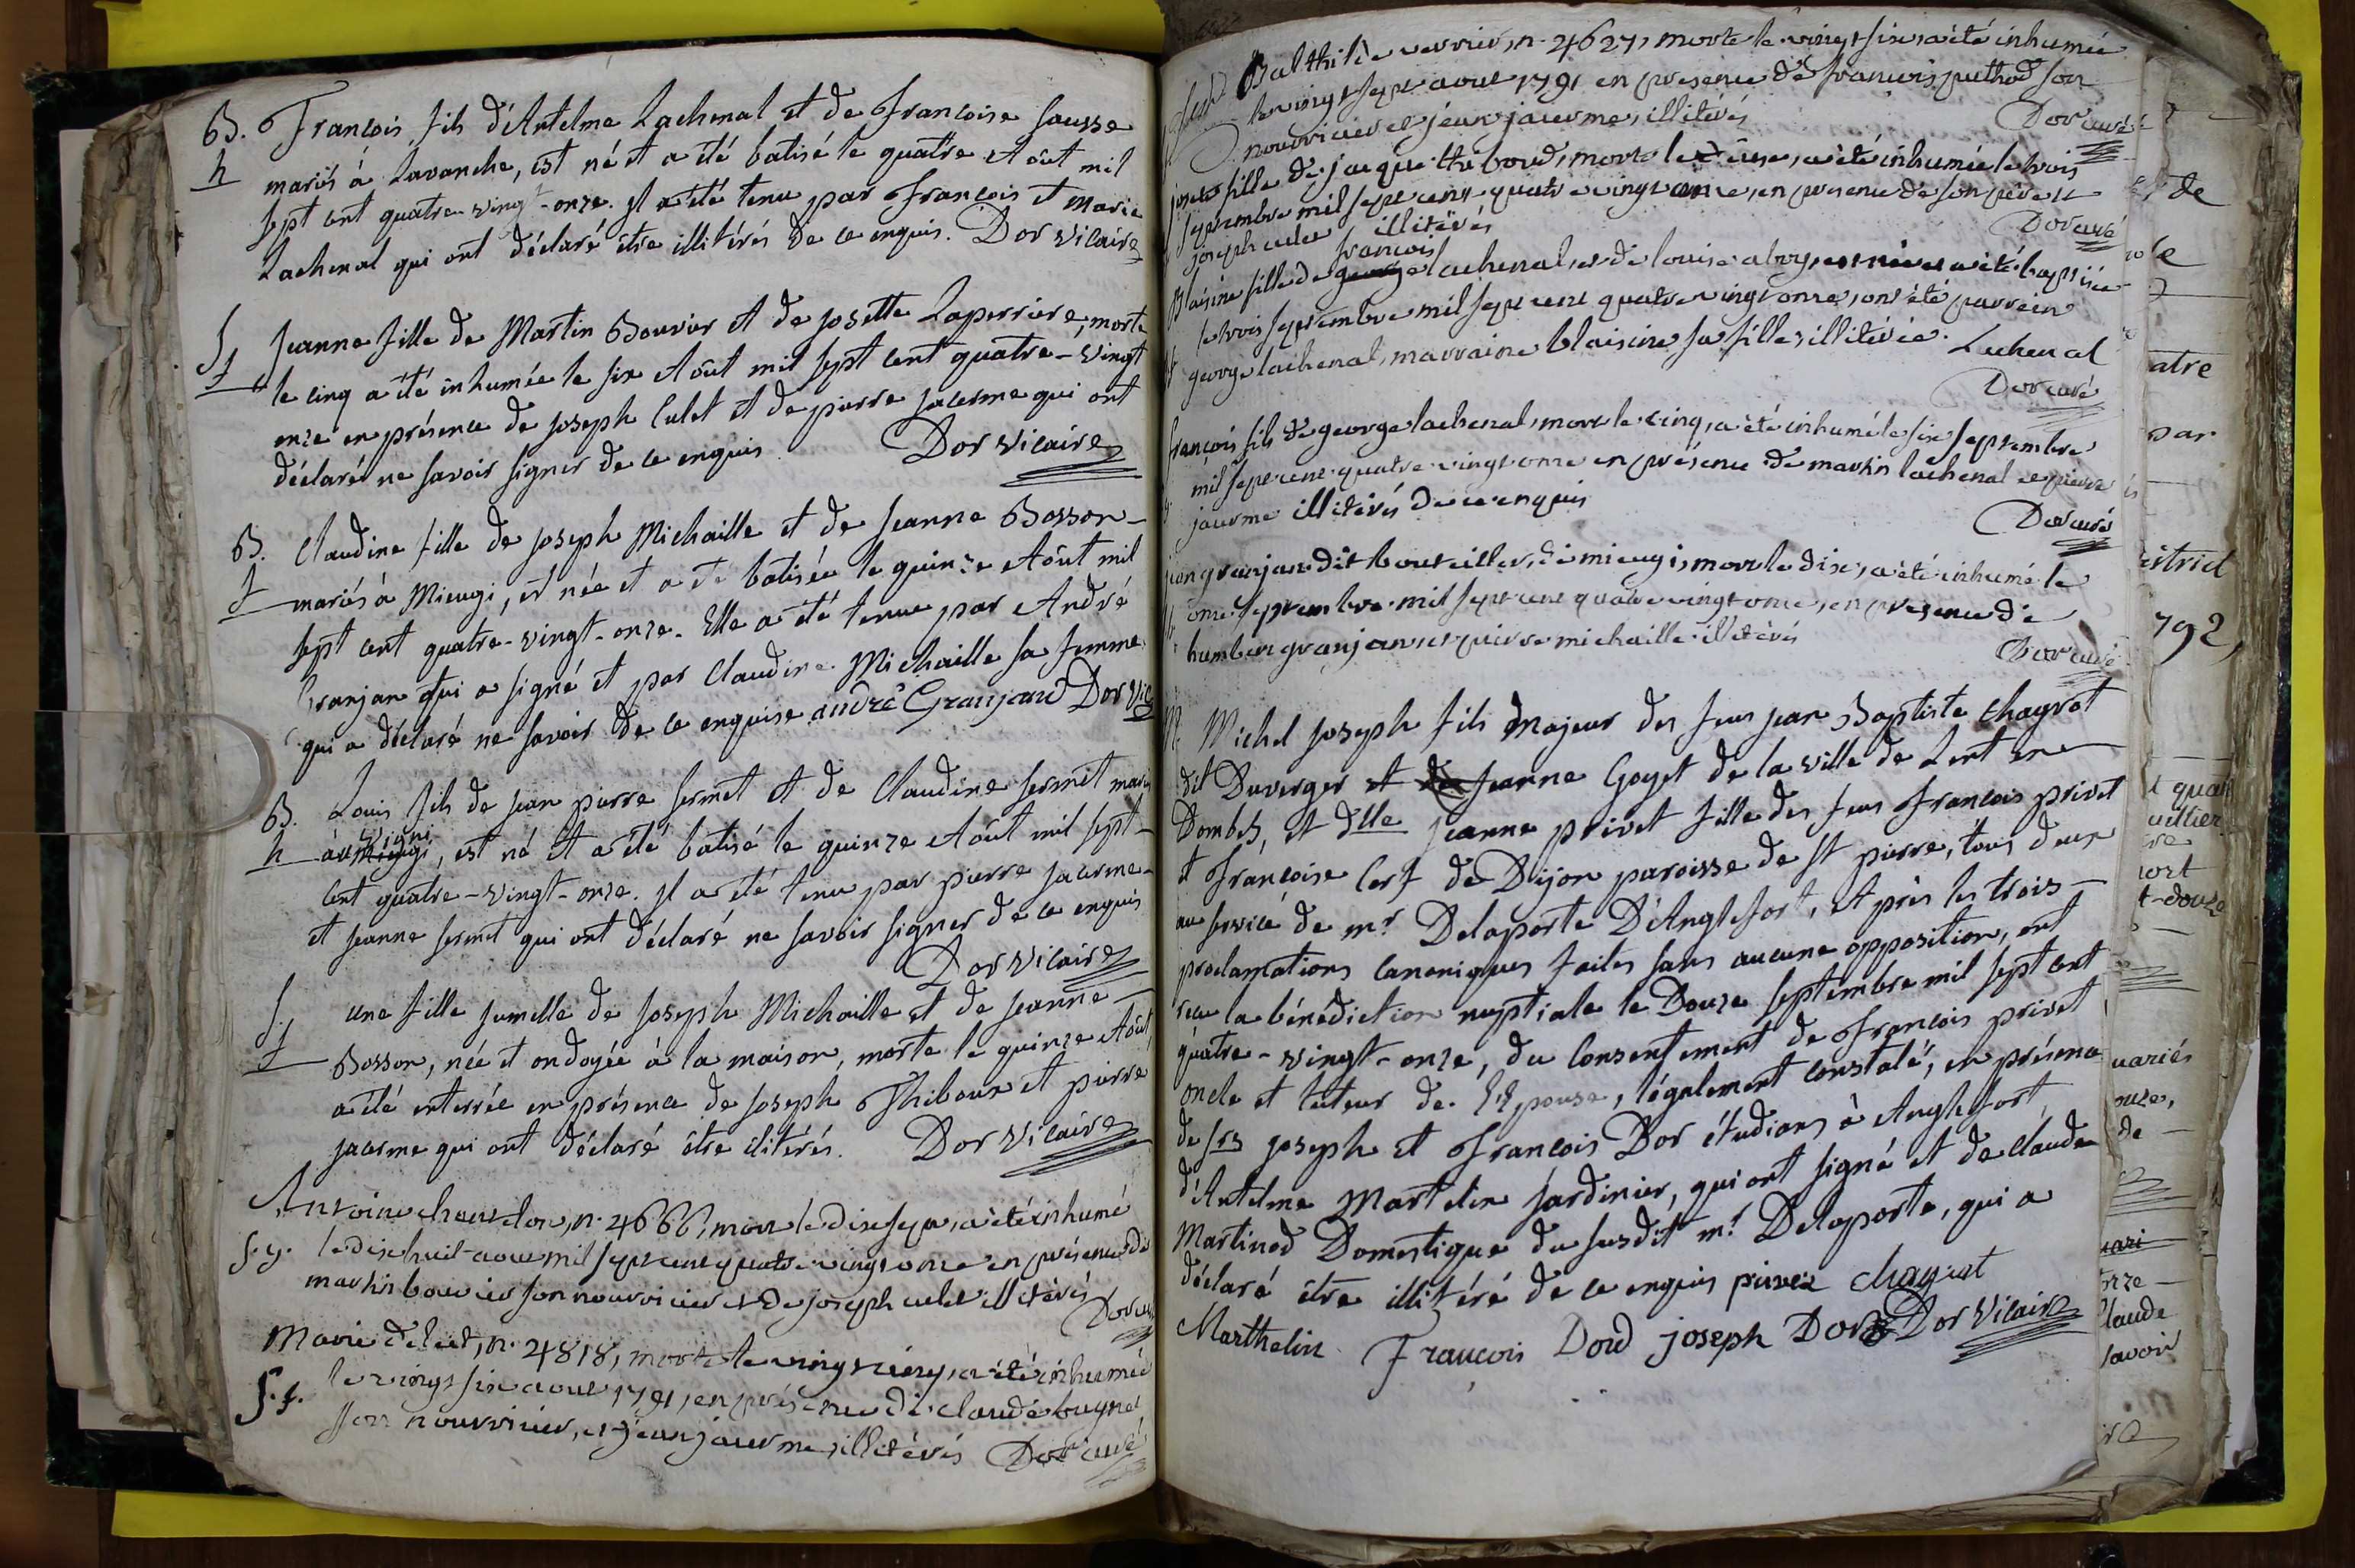 B. François, fils d'Antelme Lachenal et de Françoise Sausse
h mariés à Lavanche, est né et a été batisé le quatre Août mil
sept cent quatre-vingt-onze. Il a été tenu par François et Marie
Lachenal qui ont déclaré être illitérés de ce enquis. Dor vicaire
S. Jeanne fille de Martin Bouvier et de Josette Laperrière, morte
f le cinq a été inhumée le six Août mil sept cent quatre-vingt
onze en présence de Joseph Culet et de pierre jacerme qui ont
déclaré ne savoir signer de ce enquis. Dor vicaire
B. Claudine fille de Joseph Michaille et de Jeanne Bosson
f mariés à Mieugi, est née et a été batisée le quinze Août mil
sept cent quatre-vingt-onze. Elle a été tenue par André
Granjan qui a signé et par Claudine Michaille sa femme
qui a déclaré ne savoir de ce enquise andré Granjand Dor vic
B. Louis fils de jean pierre fermet et de Claudine fermet mariés
h à mieugi, est né et a été batisé le quinze Août mil sept
cent quatre-vingt-onze. Il a été tenu par pierre jacerme
et jeanne fermet qui ont déclaré ne savoir signer de ce enquis
Dor vicaire
S. une fille jumelle de Joseph Michaille et de Jeanne
f Bosson, née et ondoyée à la maison, morte le quinze Août,
a été enterrée en présence de Joseph Thiboux et pierre
jacerme qui ont déclaré être ilitérés. Dor vicaire
Antoine n. 4666, mort le dix sept, a été inhumé
S. g. le dix huit aout mil sept cent quatre vingt onze en présence de
martin bouvier son nourricier et de joseph culet illitérés
Dor
Marie n. 4818, morte le vingt cinq, a été inhumée
S. f. le vingt six aout 1791, en présence de claude bugnet
son nourricier, et jean jacerme, illitérés Dor curé
Balthilde verrier, n. 4627, morte le vingt six, a été inhumée
le vingt sept aout 1791 en présence de françois puthod son
nourricier et jean jacerme, illitérés
Dor curé
josete fille de jacque thiboud, morte le deux, a été inhumée le trois
septembre mil sept cent quatre vingt onze, en présence de son père et
joseph culet illitérés
Dor curé
françois
Blaisine fille de george lachenal, et de louise abry, est née et a été baptisée
le trois septembre mil sept cent quatre vingt onze, ont été parrein
george lachenal, marraine blaisine sa fille, illitérée. Lachenal
Dor curé
françois fils de george lachenal, mort le cinq, a été inhumé le six septembre
mil sept cent quatre vingt onze en présence de martin lachenal et pierre
jacerme illitérés de ce enquis
Dor curé
jean granjan dit bouteiller, de mieugi, mort le dix, a été inhumé le
onze septembre mil sept cent quatre vingt onze, en présence de
humber granjan, et pierre michaille illitérés
Dor curé
M. Michel joseph fils Majeur des feus jean Baptiste Chagrot
dit Duverger et de Jeanne Goyet de la ville de Lent en
Dombes, et Dlle jeanne privet fille des feus François privet
et Françoise Cerf de Dijon paroisse de St pierre, tous deux
au service de mr Delaporte D'Anglefort, Après les trois
proclamations canoniques faites sans aucune opposition, ont
reçu la bénédiction nuptiale le Douze septembre mil sept cent
quatre-vingt-onze, du consentement de François privet
oncle et tuteur de l'Epouse, légalement constaté, en présence
de Srs joseph et François Dor étudians à Anglefort
d'Antelme Martelin jardinier, qui ont signé et de claude
Martinod Domestique du susdit mr Delaporte, qui a
déclaré être illitéré de ce enquis privez chagrot
Marthelin François Dord joseph Dor Dor vicaire
de
le
atre
par
istrict
792,
t quat
uillier
re
sort
t-douze
mariés
de
onze
claude
savoir